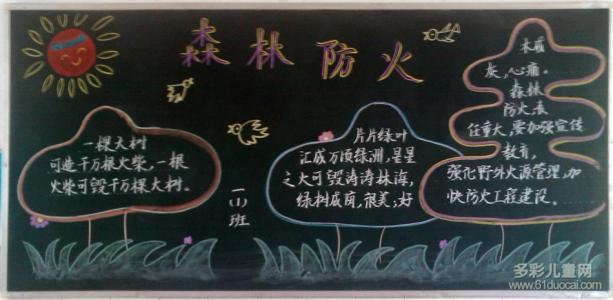 森林防火
一棵大树
可造千万根火柴,一根
火柴可毁千万棵大树。
一(1)班
片片绿叶
汇成万顷绿洲,星星
之火可毁涛涛林海,
绿树成荫,很美;好
灰,心痛。
森林
防火,责
任重大,要加强宣传
教育,
强化野外火源管理,加
快防火工程建设。
多彩儿童网
www.61duocai.com